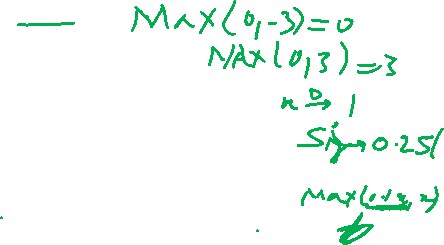 Max(0,-3)=0
MAX(0,3)=3
x → 1
Sig → 0.25
Max(